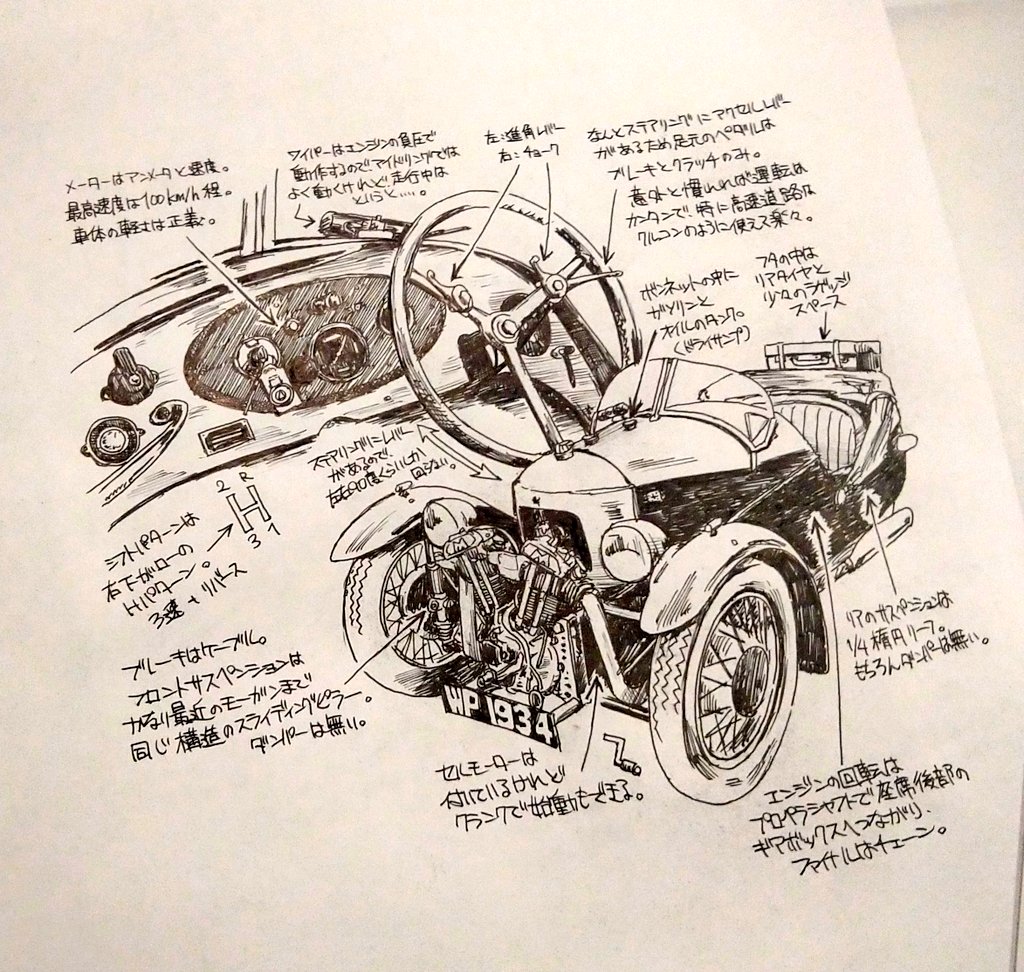 メーターはアンメータと速度。
最高速度は100km/h程。
車体の軽さは正義。
ワイパーはエンジンの負圧で
動作するので、アイドリングでは
よく動くけれど走行中は
というと…。
左:進角レバー
右:チョーク
なんとステアリングにアクセルレバー
があるため足元のペダルは
ブレーキとクラッチのみ。
意外と慣れれば運転は
カンタンで、特に高速道路は
クルコンのように使えて楽々。
ボンネットの中に
ガソリンと
オイルのタンク。
(ドライサンプ)
フタの中は
リアタイヤと
少々のラゲッジ
スペース
ステアリングにレバー
があるので、
左右90度くらいしか
回らない。
2 R
3 1
シフトパターンは
右下がローの
Hパターン。
3速+リバース
ブレーキはケーブル。
フロントサスペンションは
かなり最近のモーガンまで
同じ構造のスライディングピラー。
ダンパーは無い。
WP 1934
セルモーターは
付いているけれど
クランクで始動もできる。
リアのサスペンションは
1/4楕円リーフ。
もちろんダンパーは無い。
エンジンの回転は
プロペラシャフトで座席後部の
ギアボックスへつながり、
ファイナルはチェーン。